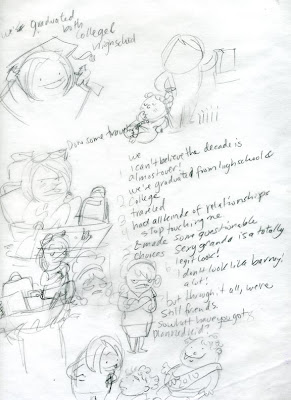 we've graduated
both
college &
highschool
Done some traveling
we
I can't believe the decade is
almost over!
we've graduated from highschool &
1 college
2 traveled
3 had all kinds of relationships
stop touching me
& made some questionable
choices Sexy grandma is a totally
legit look!
I don't look like barney!
a lot!
but through it all, we're
still friends.
So what have you got
planned kid?